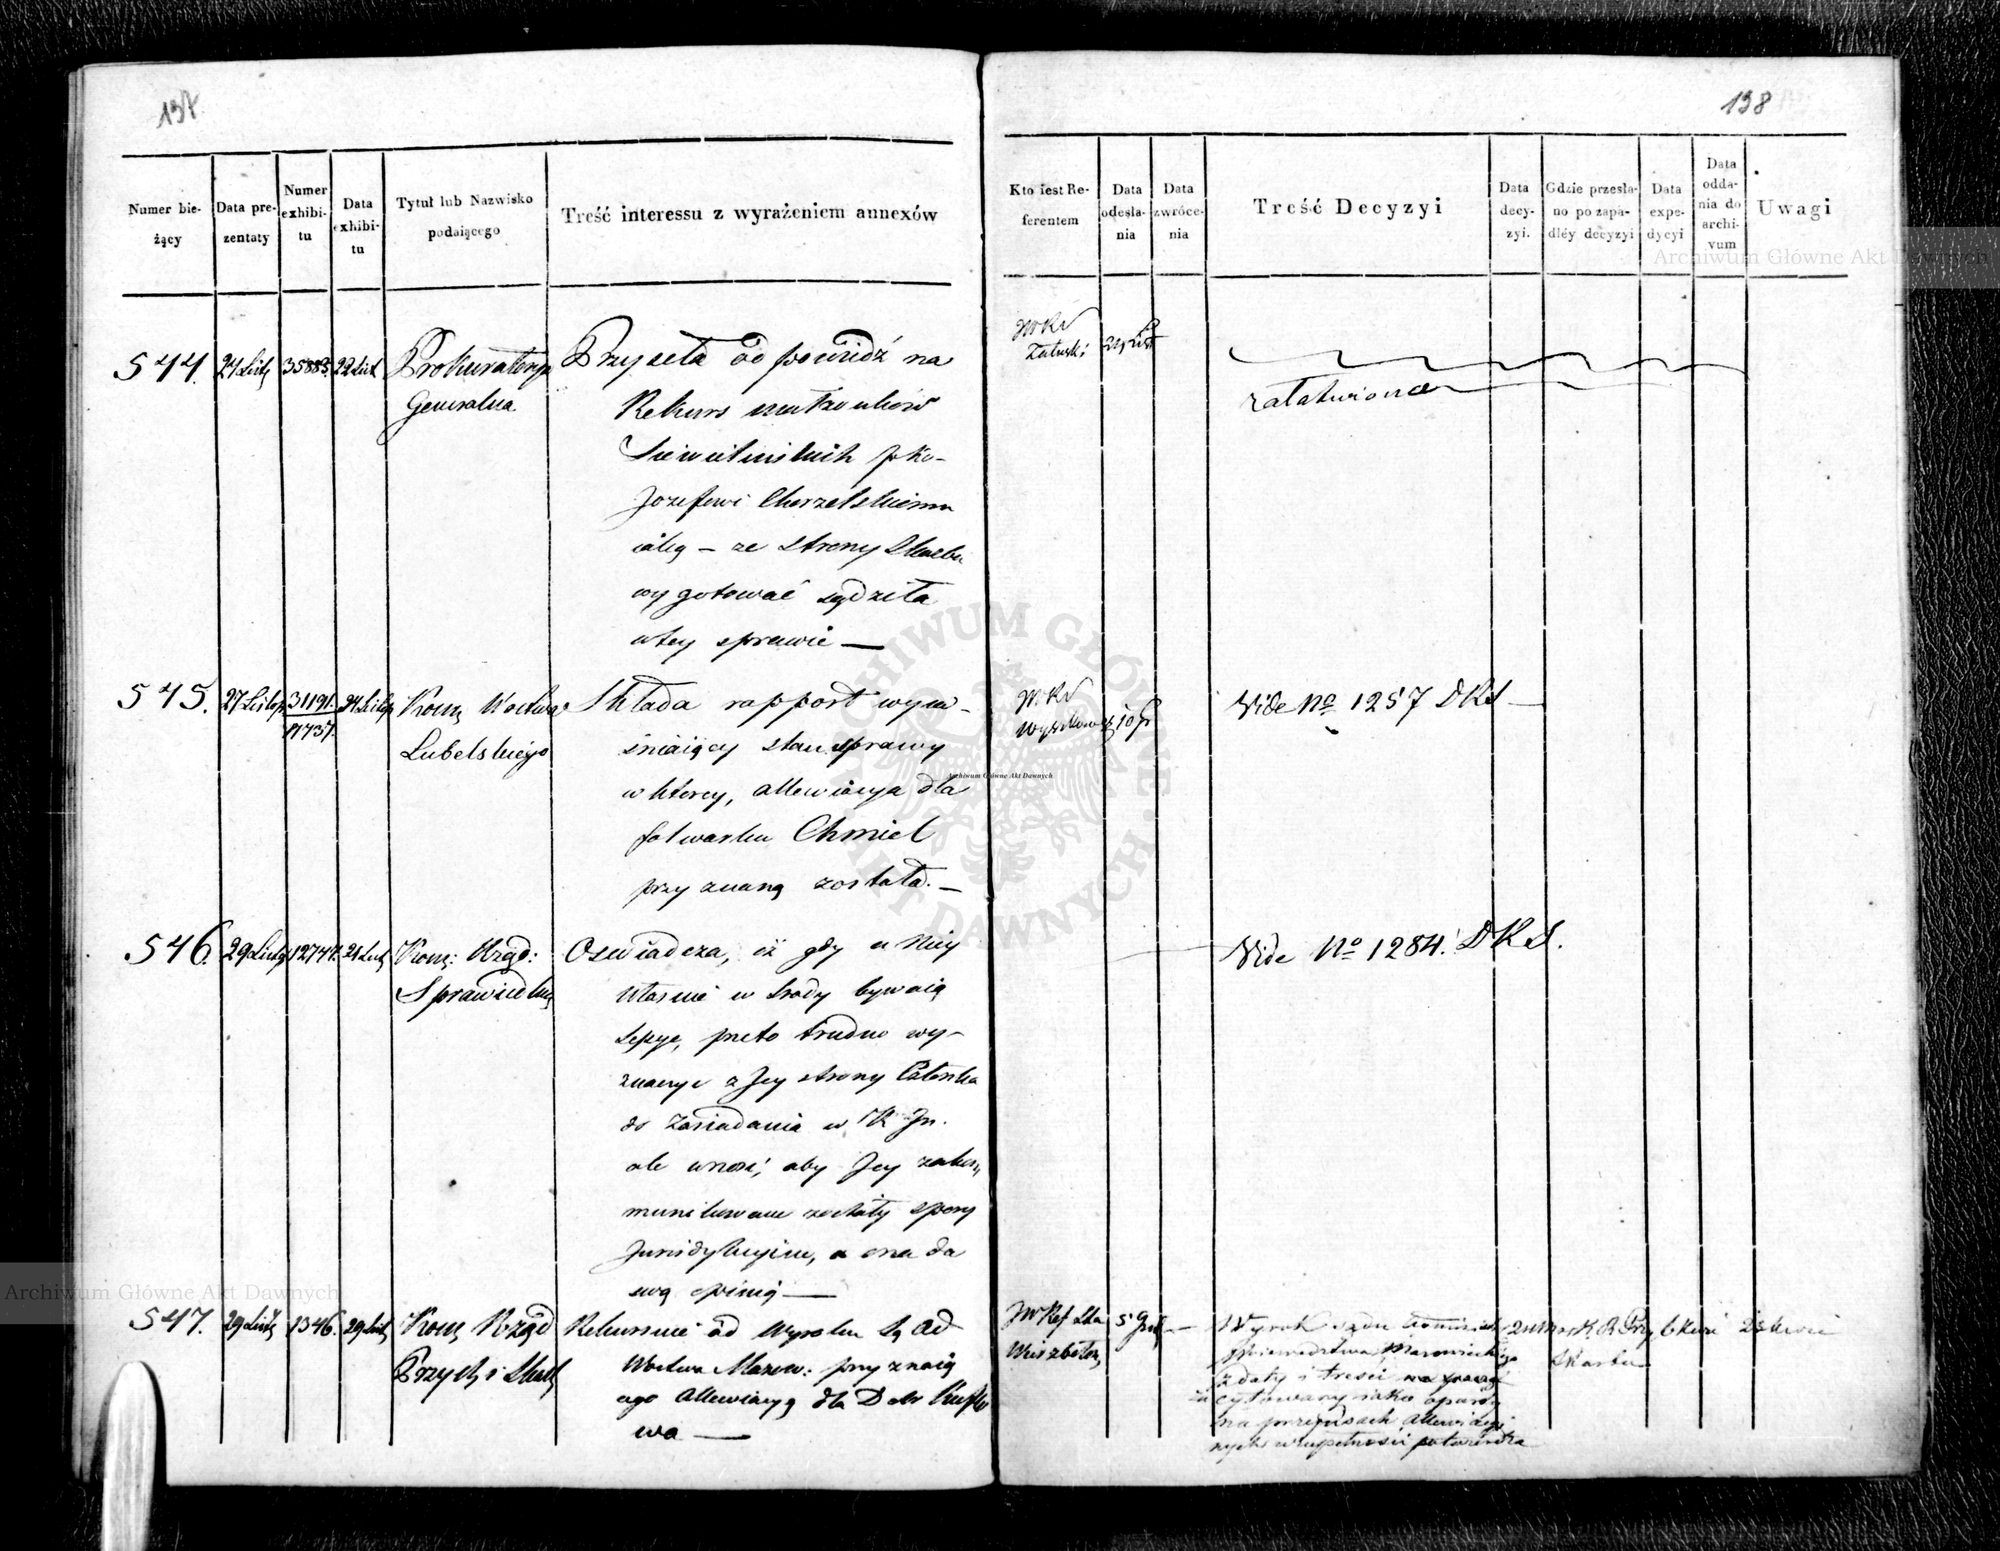 137.
Numer bie-
żący
Data pre-
zentaty
Numer
exhibi-
tu
Data
exhibi-
tu
Tytuł lub Nazwisko
podaiącego
Treść interessu z wyrażeniem annexów
544.
27 List
35883
22 List
Prokuratorya
Generalna
Przyseła odpowiedź na
Rekurs małżonków
pko
Jozefowi
iaką — ze strony Skarbu
wygotować sądziła
w tey sprawie —
545.
27 Listop
31191.
17757.
24 Listop
Komę Woctwa
Lubelskiego
Składa rapport wyia-
śniaiący stan sprawy
w ktorey, allewiacya dla
folwarku Chmiel
przyznaną została. —
546.
29 Listop
12747.
21 List
Kom: Rząd:
Sprawiedliw
Oswiadcza, iż gdy u Niey
własnie w srody bywaią
Sessye, przeto trudno wy-
znaczyć z Jey strony Członka
do zasiadania w
ale wnosi, aby Jey zakom
munikowane zostały spory
Jurisdykcyine, a ona da
swą opinią —
547.
29 List
1346.
29 List
Kom Rząd
Przych i Skarb
Rekursuie od Wyroku Są Ad
Woctwa Mazow: przyznaią
cego Allewiacyą dla Dobr
wa —
138
Kto iest Re-
ferentem
Data
odesła-
nia
Data
zwróce-
nia
Treść Decyzyi
Data
decy-
zyi.
Gdzie przesła-
no po zapa-
dłéy decyzyi
Data
expe-
dycyi
Data
odda-
nia do
archi-
vum
Uwagi
JW RS
Załuski
29 List
załatwione
JW RS
Vide No 1257 DKS —
Vide No 1284. DKS.
JW Ref Sta
5 Gru —
Wyrok Sądu Administ
Woiewodztwa Mazowieckiego
z daty i treści
cytowany iako oparty
na przepisach Allewiacyi
nych w zupełności potwierdza
K R Przy
Skarbu
Archiwum Główne Akt Dawnych
Archiwum Główne Akt Dawnych
Archiwum Główne Akt Dawnych
ARCHIWUM GŁÓWNE AKT DAWNYCH